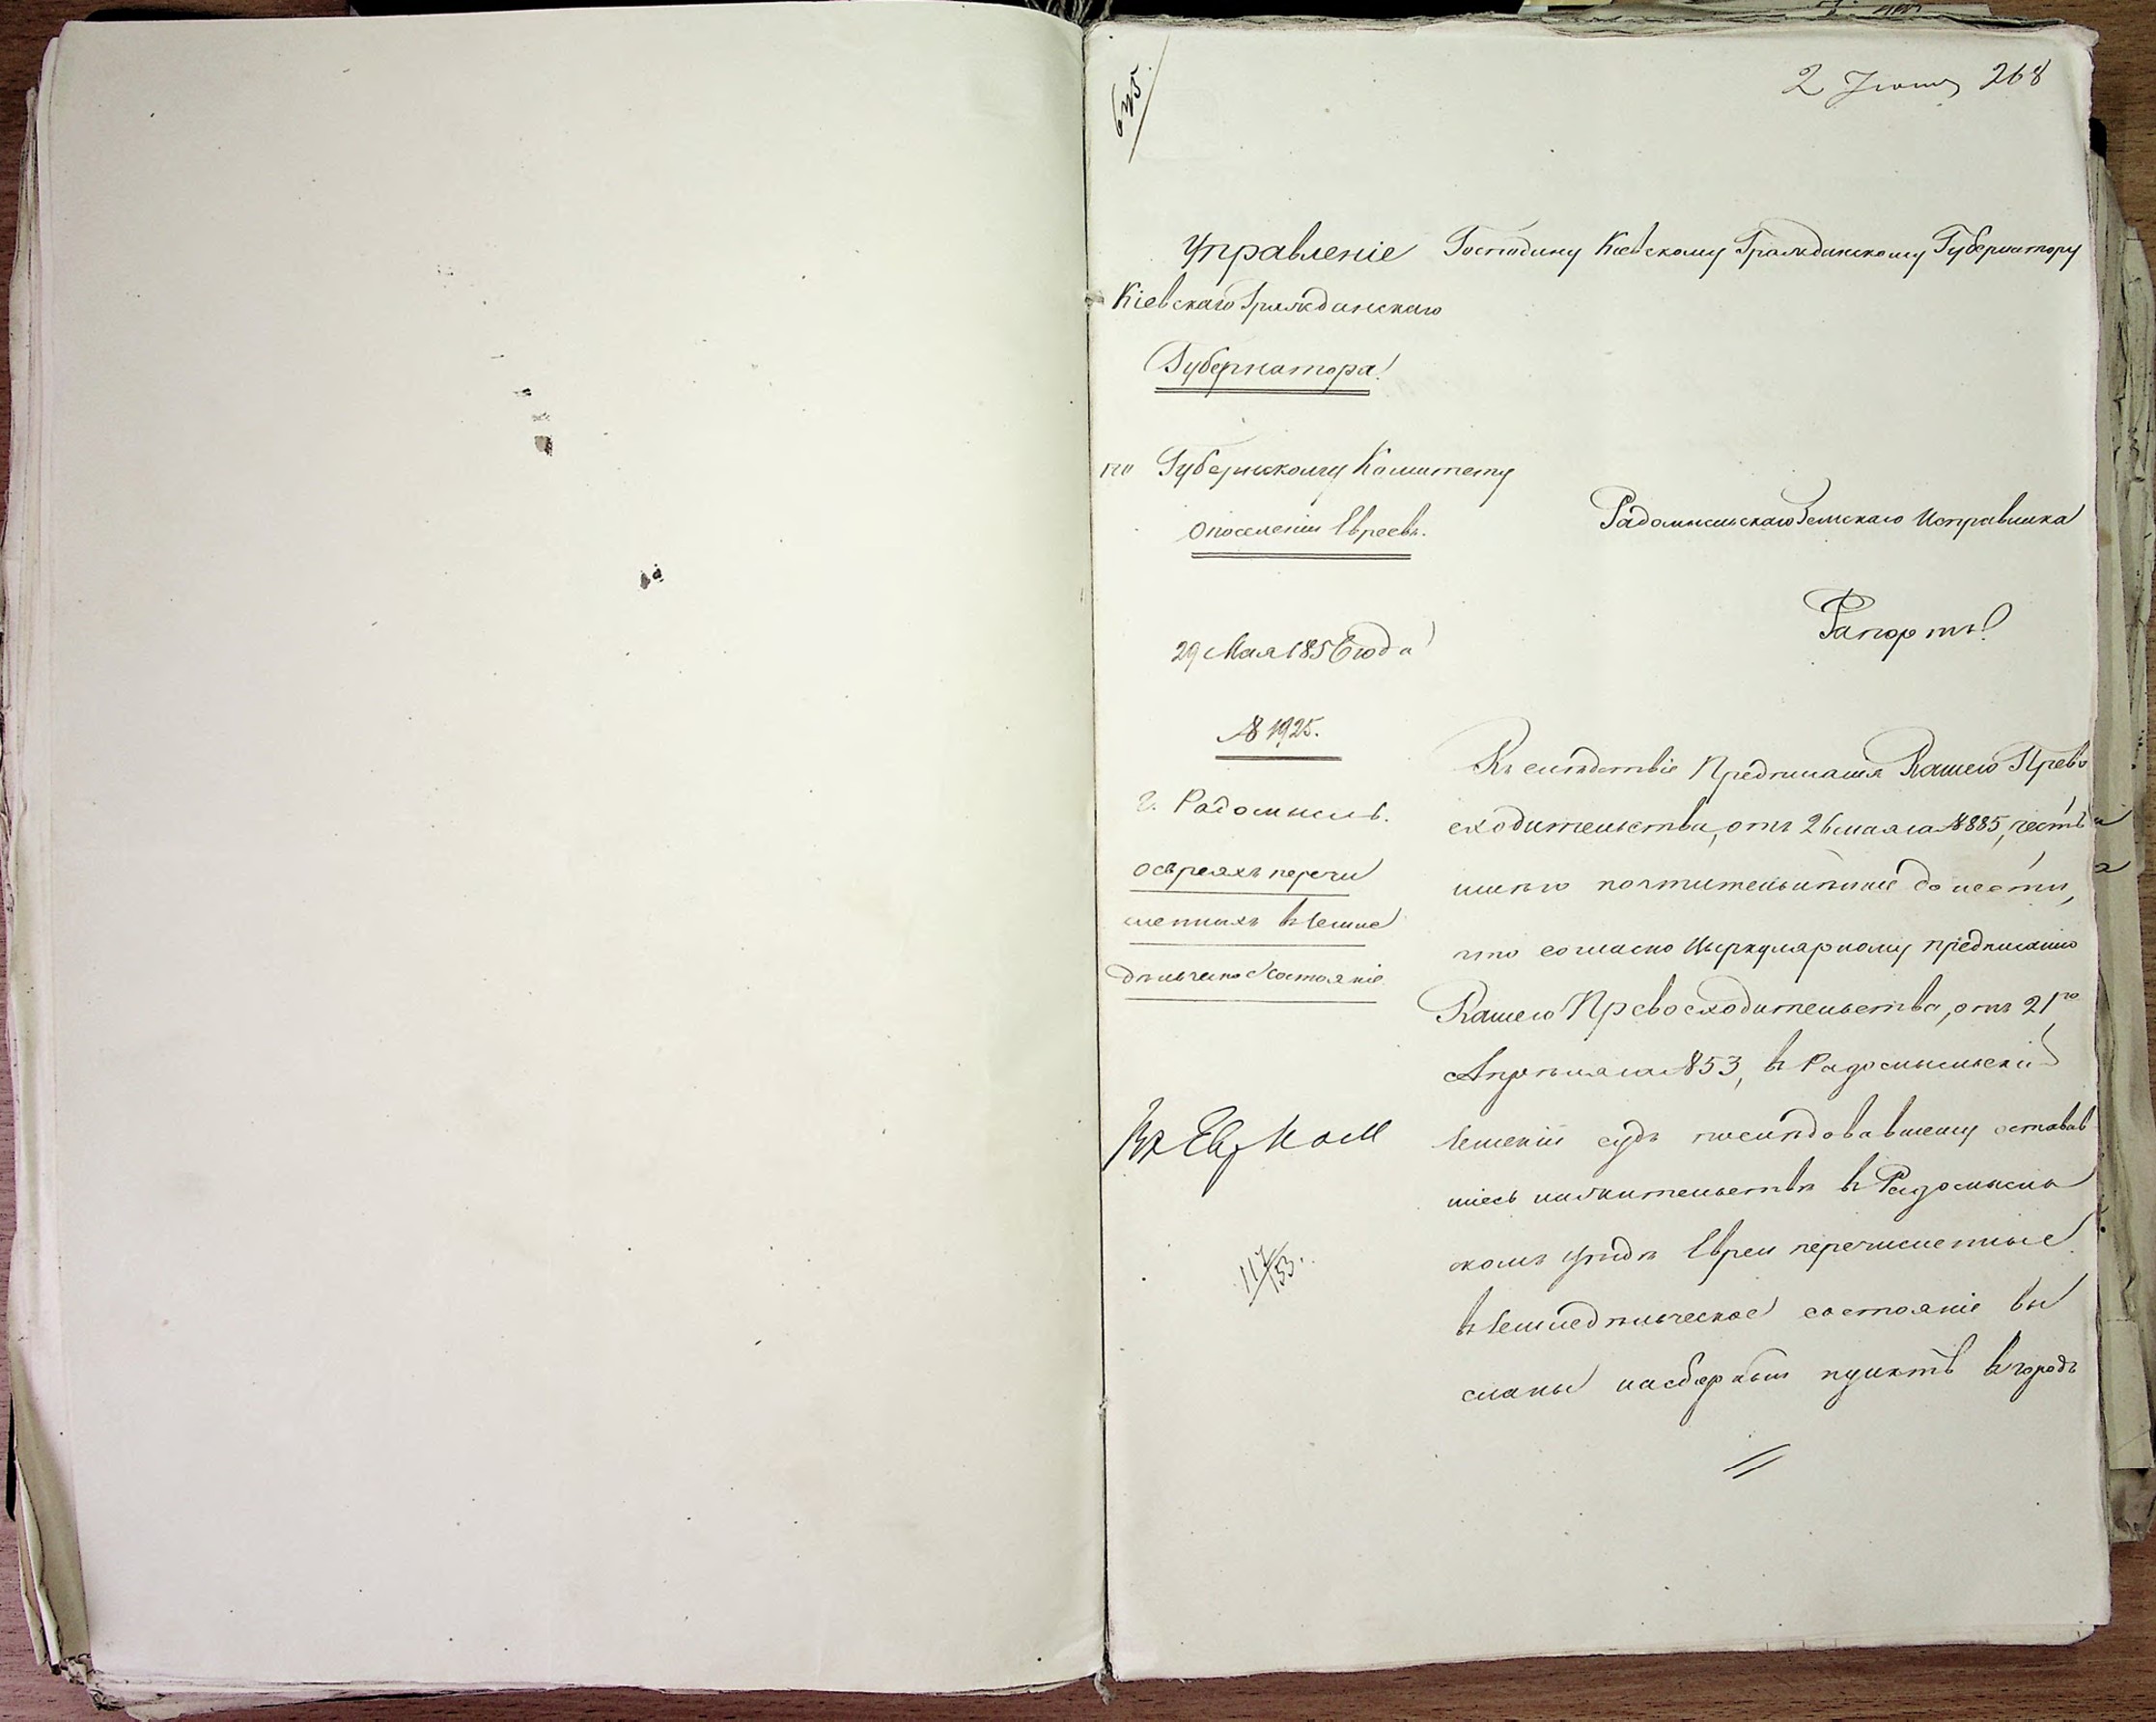 645.
2 Іюня 268
Управленіе
Кіевскаго Гражданскаго
Губернатора
по Губернскому Комитету
о поселеніи Евреевъ.
29 Мая 1856 года
№ 1925.
г. Радомысль.
о евреяхъ перечи
сленныхъ в земле
дѣльческое состояніе
Въ Евр Ком
117/53.
Господину Кіевскому Гражданскому Губернатору
Радомысльскаго Земскаго Исправника
Рапортъ
Въ слѣдствіе Предписанія Вашего Прево
сходительства, отъ 26 мая за № 885, честь
имѣю почтительнѣйше донести,
что согласно Циркулярному предписанію
Вашего Превосходительства, отъ 21го
Апрѣля за № 853, в Радомысльскій
Земскій судъ послѣдовавшему оставав
шіесь на жительствѣ в Радомысль
скомъ уѣздѣ Евреи перечисленные
в земледѣльческое состояніе вы
сланы на сборный пунктъ в городъ